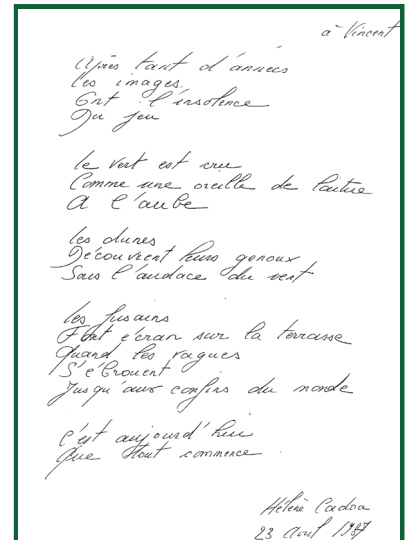 à Vincent
Après tant d'années
Les images
Ont l'insolence
Du jeu
Le vert est cru
Comme une oreille de laitue
A l'aube
Les dunes
Découvrent leurs genoux
Sous l'audace du vent
Les fusains
Font écran sur la terrasse
Quand les vagues
S'ébrouent
Jusqu'aux confins du monde
C'est aujourd'hui
Que tout commence
Hélène Cadou
23 avril 1987